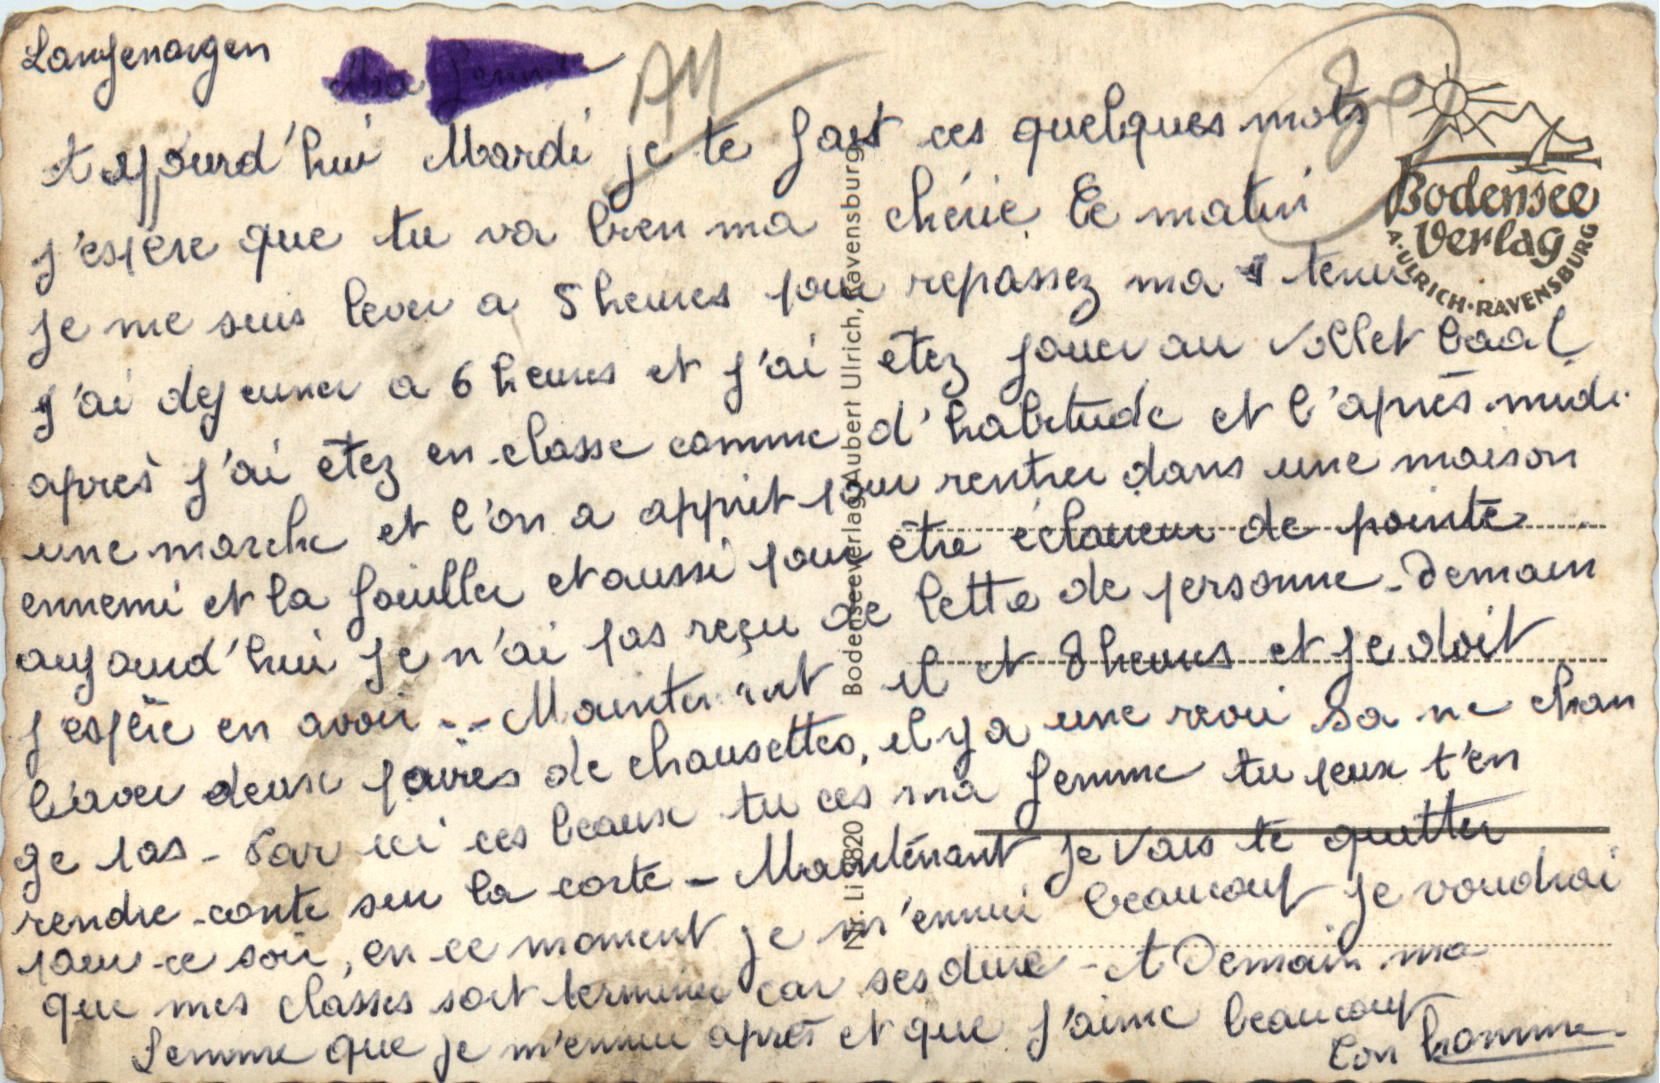 Langenargen
Ma femme
Aujourd'hui Mardi je te fait ces quelques mots
j'espère que tu va bien ma chérie. Ce matin
je me suis lever a 5 heures pour repassez ma tenue
j'ai dejeuner a 6 heures et j'ai etez jouer au vollet baal
après j'ai etez en classe comme d'habitude et l'après-midi
une marche et l'on a apprit pour rentrer dans une maison
ennemi et la fouiller et aussi pour être éclaireur de pointe
aujourd'hui je n'ai pas reçu de lettre de personne. Demain
j'espère en avoir.. Maintenant il et 8 heures et je doit
laver deux paires de chausettes, il y a une revue sa ne chan
ge pas - Par ici ces beaux tu ces ma femme tu peux t'en
rendre conte sur la carte - Maintenant je vais te quitter
pour ce soir, en ce moment je m'ennui beaucoup je voudrai
que mes classes soit terminer car ses dure - A Demain ma
femme que je m'ennui après et que j'aime beaucoup
ton homme.
Bodensee
Verlag
A·ULRICH·RAVENSBURG
Nr. Li 6820 Bodenseeverlag Aubert Ulrich, Ravensburg